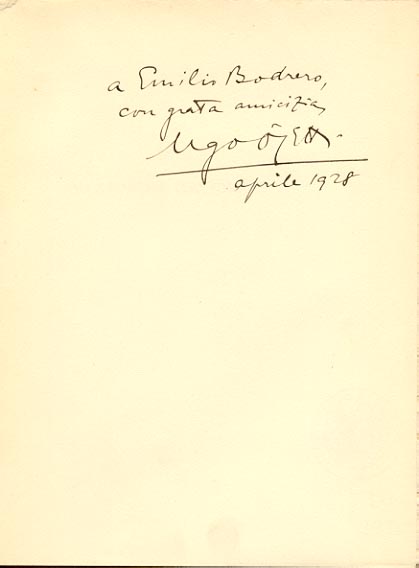 a Emilio Bodrero,
con grata amicizia,
Ugo Ojetti.
aprile 1928